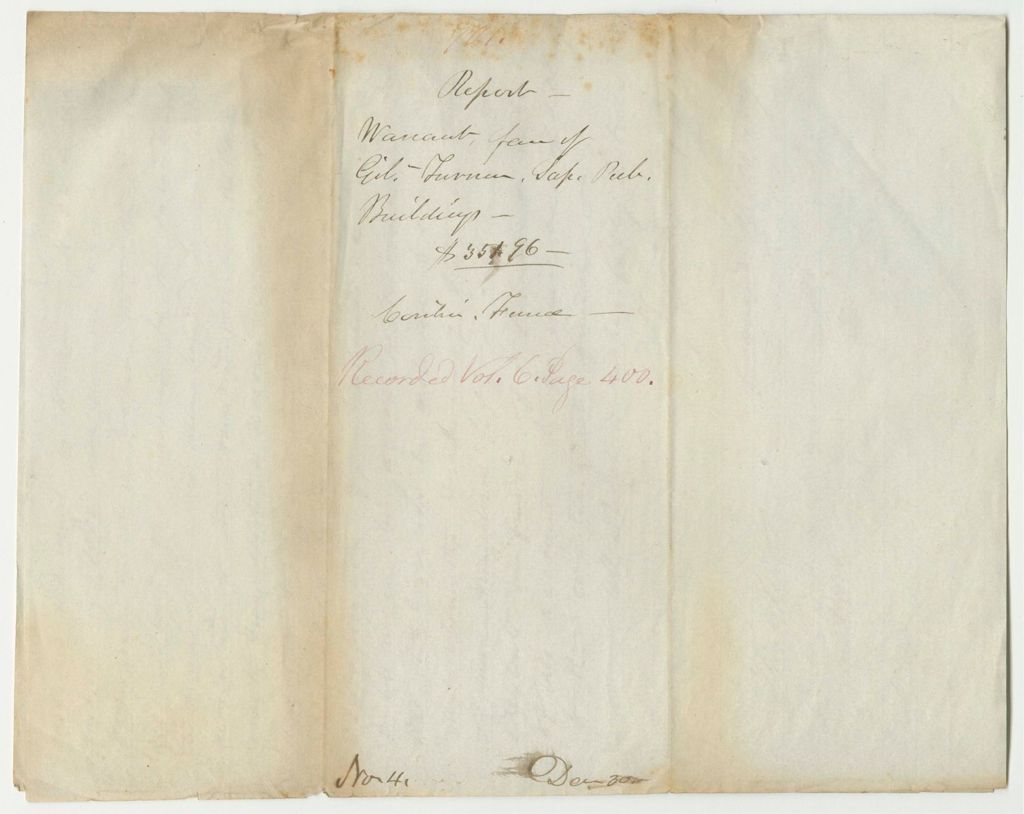 Report —
Warrant, fav of
Gil. Turner, Sup. Pub.
Buildings —
$ 351 96 —
Contin. Fund —
Recorded Vol. 6. Page 400.
No 4.